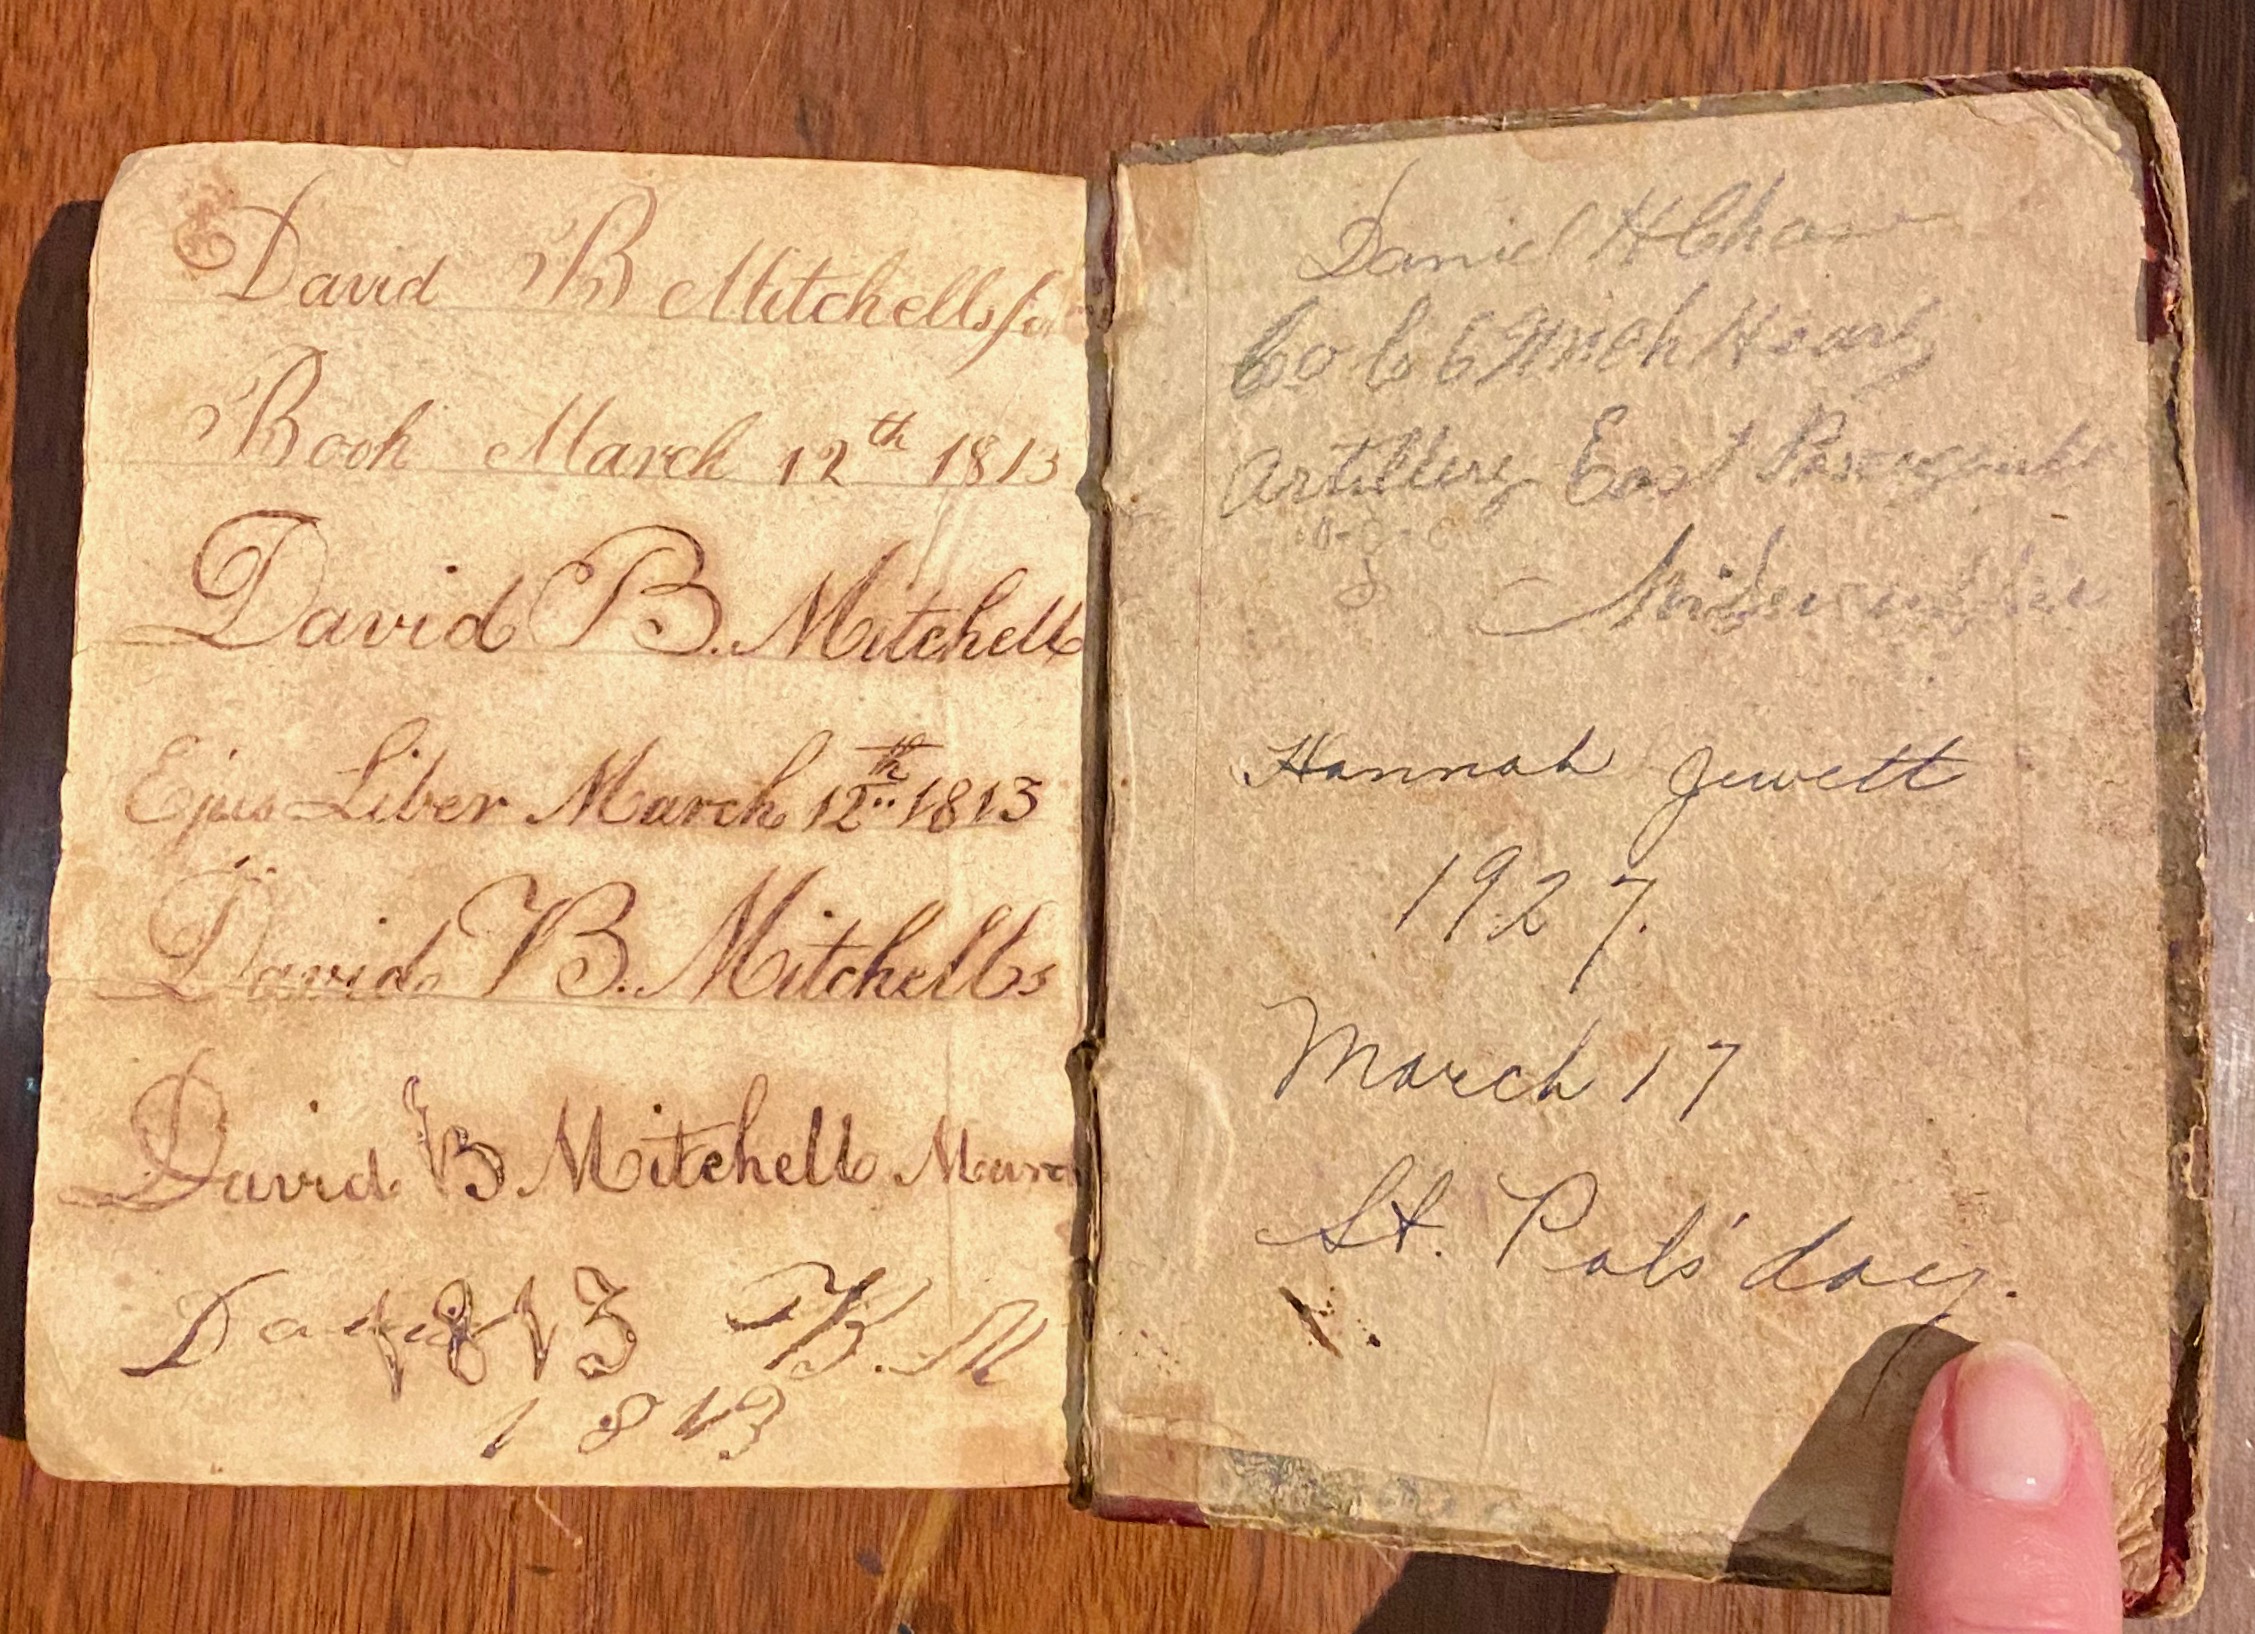 David B Mitchells
Book March 12th 1813
David B. Mitchell
Ejus Liber March 12th 1813
David B. Mitchells
David B Mitchell Marc
Da 1813 B. M
1813
Daniel H Chase
Co C 6 Mich Heavy
Artillery East Pascagoula
Hannah Jewett
1927.
March 17
St. Pat's' day.